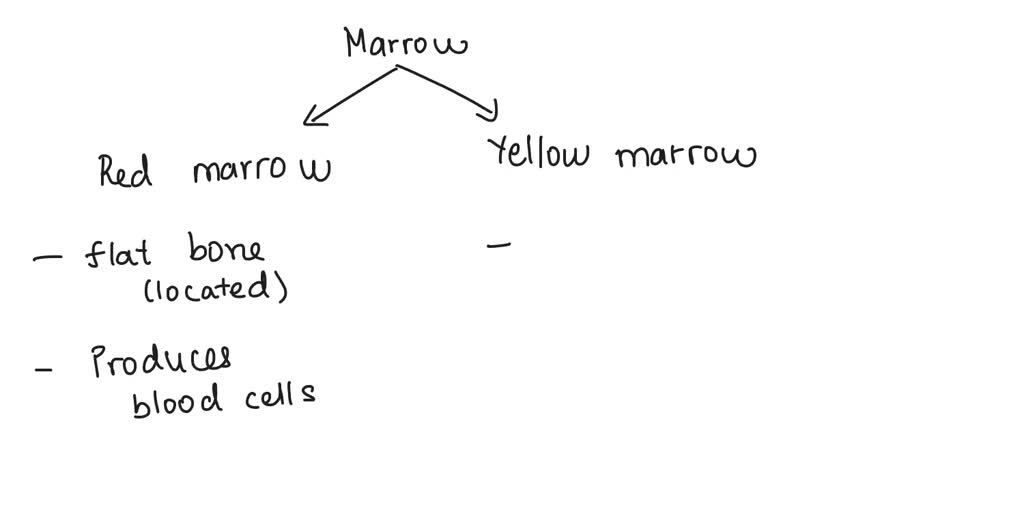 Marrow
Red marrow
Yellow marrow
- flat bone
(located)
-
- Produces
blood cells